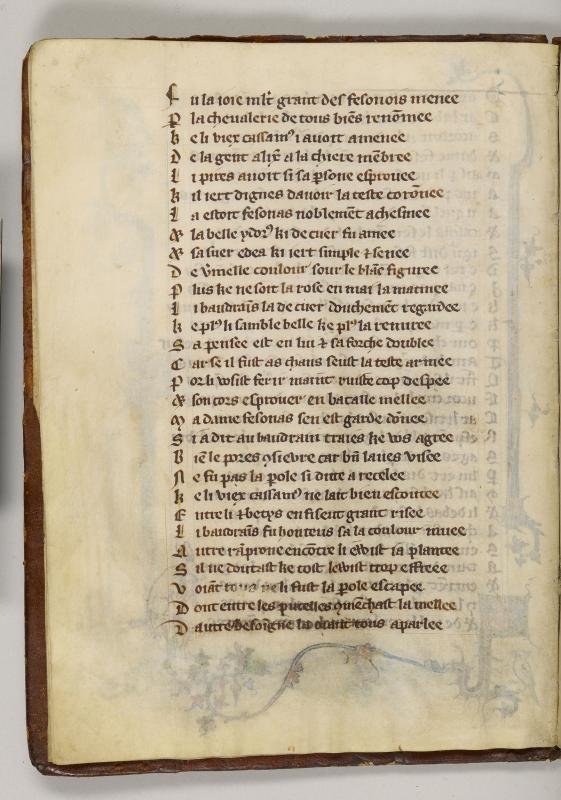 F u la ioie ml̃t grant des fesonois menee
P la cheualerie de tous biẽs renõmee
k e li viex cassamꝰ i auoit amenee
D e la gent alix̃ a la chiere mẽbree
L i pites auoit si sa ꝑsone esprouee
k il iert dignes dauoir la teste corõnee
L a estoit fesonas noblemẽt achesmee
⁊ la belle ydorꝰ ki de cuer fu amee
⁊ sa suer edea ki iert simple ⁊ senee
D e v̾melle coulour sour le blãc figuree
P lus ke ne soit la rose en mai la matinee
L i baudraĩs la de cuer douchemẽt regardee
k e plꝰ li samble belle ke plꝰ la remiree
S a pensee est en lui ⁊ sa forche doublee
C ar se il fust as chans seust la teste armee
P or li vosist ferir maint ruiste cop despee
⁊ son cors esprouer en bataille mellee
M a dame fesonas sen est garde dõnee
S i a dit au baudrain traies ke vos agree
B iẽ le pores ꝯsieure car bñ laues visee
N e fu pas la ꝑole si dite a recelee
k e li viex cassamꝰ ne lait bien escoutee
E ntre li ⁊ betys en fisent grant risee
L i baudraĩs fu honteus sa la coulour muee
A utre rãprone encõtre li ewist ia plantee
S il ne doutast ke tost lewist trop effreee
V oiãt tous ne li fust la ꝑole escapee
D ont entre les pucelles ꝯmẽchast la mellee
D autre besoigne la oiant tous aparlee